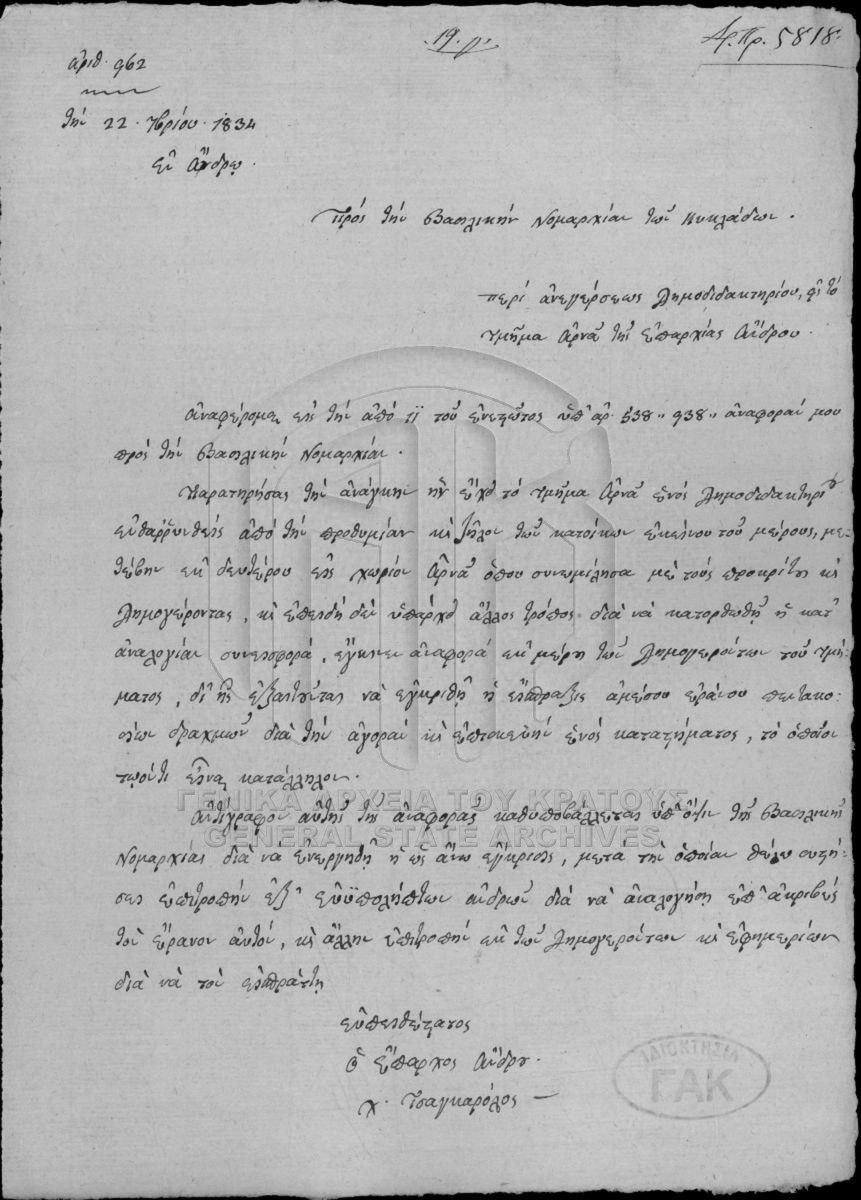 19.
Ἀρ. Πρ. 5818.
ἀριθ. 962
τὴν 22. 7βρίου. 1834
ἐν Ἄνδρῳ.
Πρὸς τὴν Βασιλικὴν Νομαρχίαν τῶν Κυκλάδων.
περὶ ἀνεγέρσεως Δημοδιδακτηρίου, εἰς τὸ
τμῆμα Ἀρνᾶ τῆς ἐπαρχίας Ἄνδρου.
Ἀναφέρομαι εἰς τὴν ἀπὸ 11 τοῦ ἐνεστῶτος ὑπ' ἀρ. 538 " 938 " ἀναφοράν μου
πρὸς τὴν Βασιλικὴν Νομαρχίαν.
Παρατηρήσας τὴν ἀνάγκην ἣν ἔχει τὸ τμῆμα Ἀρνᾶ ἑνὸς Δημοδιδακτηρίου
ἐνθαῤῥυνθεὶς ἀπὸ τὴν προθυμίαν καὶ ζῆλον τῶν κατοίκων ἐκείνου τοῦ μέρους, με-
τέβην ἐκ δευτέρου εἰς χωρίον Ἀρνᾶ ὅπου συνωμίλησα μὲ τοὺς προκρίτους καὶ
Δημογέροντας, καὶ ἐπειδὴ δὲν ὑπάρχει ἄλλος τρόπος διὰ νὰ κατορθωθῇ ἡ κατ'
ἀναλογίαν συνεισφορὰ, ἔγινεν ἀναφορὰ ἐκ μέρη τῶν Δημογερόντων τοῦ τμή-
ματος, δι' ἧς ἐξαιτοῦνται νὰ ἐγκριθῇ ἡ εἴσπραξις ἀμέσου ἐράνου πεντακο-
σίων δραχμῶν διὰ τὴν ἀγορὰν καὶ ἐπισκευὴν ἑνὸς καταστήματος, τὸ ὁποῖον
τῳόντι εἶναι κατάλληλον.
Ἀντίγραφον αὐτῆς τῆς ἀναφορᾶς καθυποβάλλεται ὑπ' ὄψιν τῆς Βασιλικῆς
Νομαρχίας διὰ νὰ ἐνεργηθῇ ἡ ὡς ἄνω ἔγκρισις, μετὰ τὴν ὁποίαν θέλω συστή-
σει ἐπιτροπὴν ἐξ εὐϋπολήπτων ἀνδρῶν διὰ νὰ ἀναλογήσῃ ἐπ' ἀκριβὲς
τὸν ἔρανον αὐτὸν, καὶ ἄλλην ἐπιτροπὴν ἐκ τῶν Δημογερόντων καὶ ἐφημερίων
διὰ νὰ τὸν εἰσπράξῃ
εὐπειθέστατος
ὁ Ἔπαρχος Ἄνδρου.
Χ. Τσαγκαρόλος
ΓΕΝΙΚΑ ΑΡΧΕΙΑ ΤΟΥ ΚΡΑΤΟΥΣ
GENERAL STATE ARCHIVES
ΙΔΙΟΚΤΗΣΙΑ
ΓΑΚ